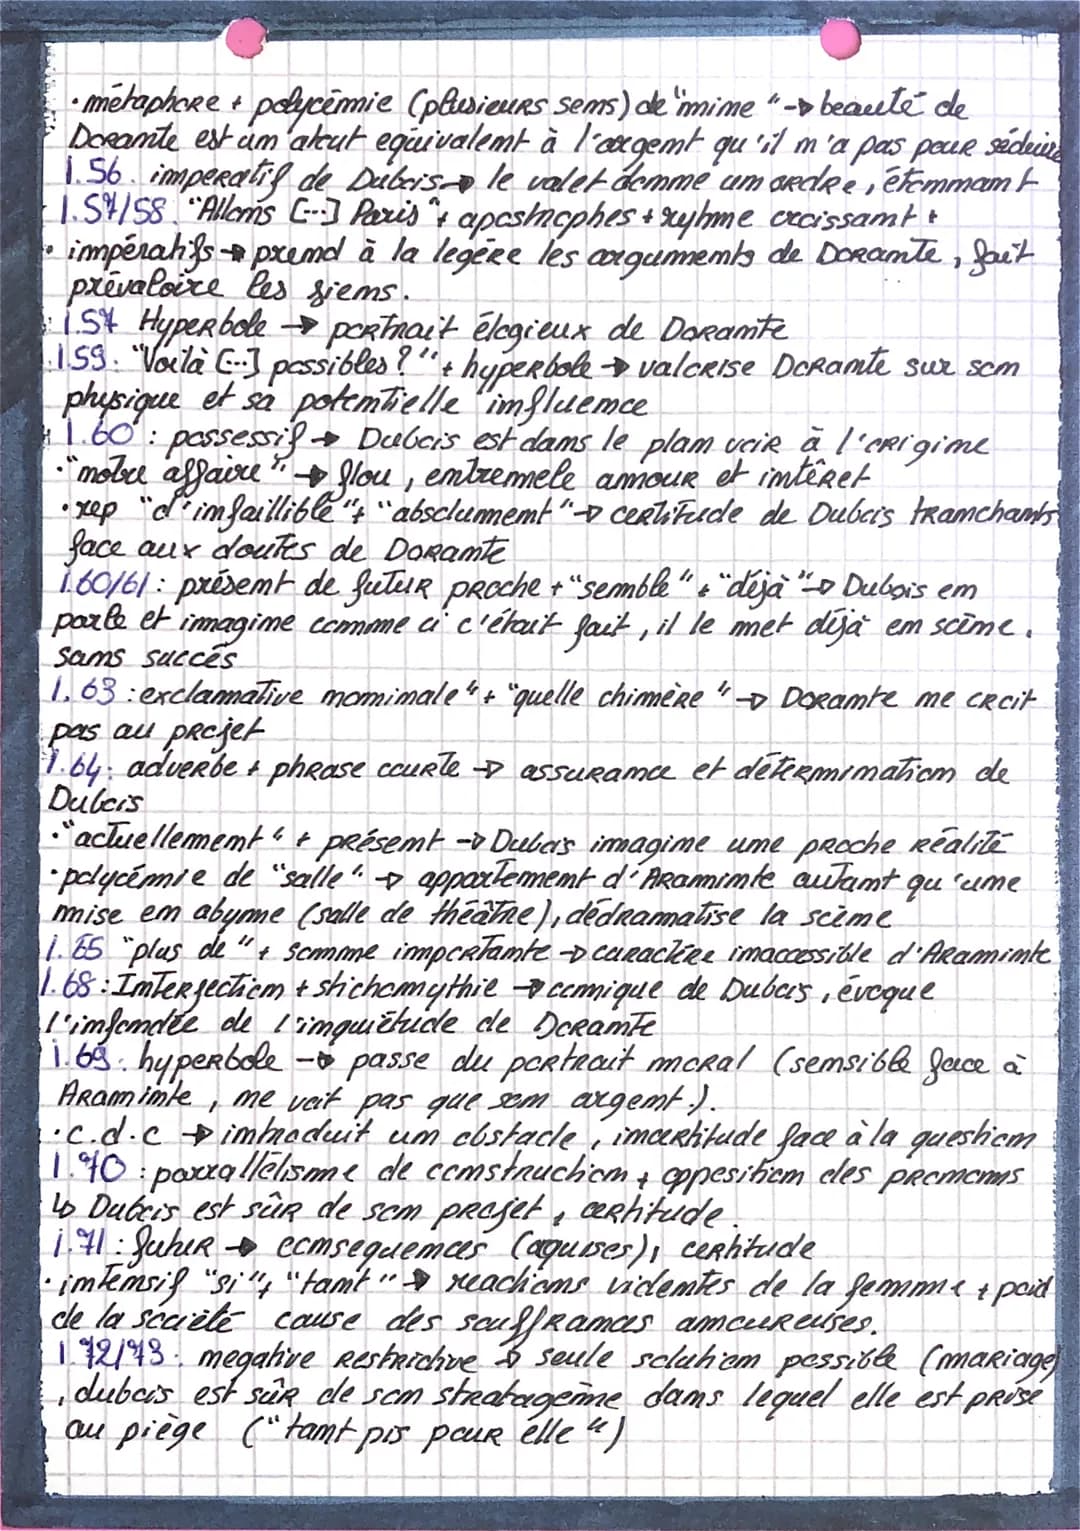 · métaphore + polycémie (plusieurs sens) de "mine" -> beauté de
Dorante est un atout équivalent à l'argent qu'il n'a pas pour séduire
l.56. imperatif de Dubois -> le valet donne un ordre, étonnant
l.57/58. "Allons [...] Paris" + apostrophes + ryhme croissant +
· impératifs -> prend à la legére les arguments de Dorante, fait
prévaloire les siens.
l.57 Hyperbole -> portrait élogieux de Dorante
l.59. "Voilà [...] possibles?" + hyperbole -> valorise Dorante sur son
physique et sa potentielle influence
l.60 : possessif -> Dubois est dans le plan voir à l'origine
·"notre affaire" -> flou, entremele amour et intêret
·rep "d'infaillible" + "absolument" -> certitude de Dubois tranchants
face aux doutes de Dorante
l.60/61 : présent de futur proche + "semble" + "déjà" -> Dubois en
parle et imagine comme ci c'était fait, il le met déjà en scène.
sans succés
l.63 : exclamative nominale" + "quelle chimère" -> Dorante ne croit
pas au projet
l.64. adverbe + phrase courte -> assurance et détermination de
Dubois
·"actuellement" + présent -> Dubois imagine une proche réalité
·polycémie de "salle" -> appartement d'Araminte autant qu'une
mise en abyme (salle de théâtre), dédramatise la scène
l.65 "plus de" + somme importante -> caractère inaccessible d'Araminte
l.68 : Interjection + stichomythie -> comique de Dubois, évoque
l'infondée de l'inquiétude de Dorante
l.69. hyperbole -> passe du portrait moral (sensible face à
Araminte, ne voit pas que son argent.).
·c.d.c -> introduit un obstacle, incertitude face à la question
l.70 : parrallélisme de construction + opposition des pronoms
↳ Dubois est sûr de son projet, certitude.
l.71 : futur -> consequences (aquises), certitude
· intensif "si" + "tant" -> reactions violentes de la femme + poid
de la société cause des souffrances amoureuses.
l.72/73. negative restrictive -> seule solution possible (mariage)
, dubois est sûr de son stratagème dans lequel elle est prise
au piège ("tant pis pour elle")